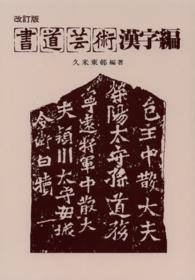 改訂版
書道芸術漢字編
久米東邨 編著
邑主中散大夫
滎陽太守孫道務
寧遠將軍中散大
夫頴川太守安城
令衛白犢